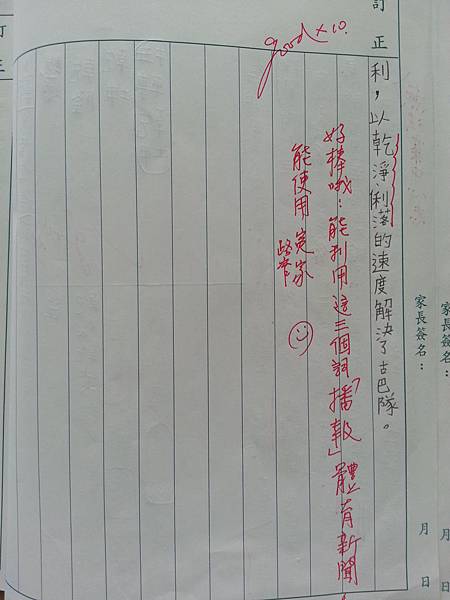 家長簽名：　月　日
家長簽名：　月　日
訂正
利，以乾淨俐落的速度解決了古巴隊。
good x 10.
好棒哦：能利用這三個詞「播報」體育新聞
能使用冤家
路窄
訂正